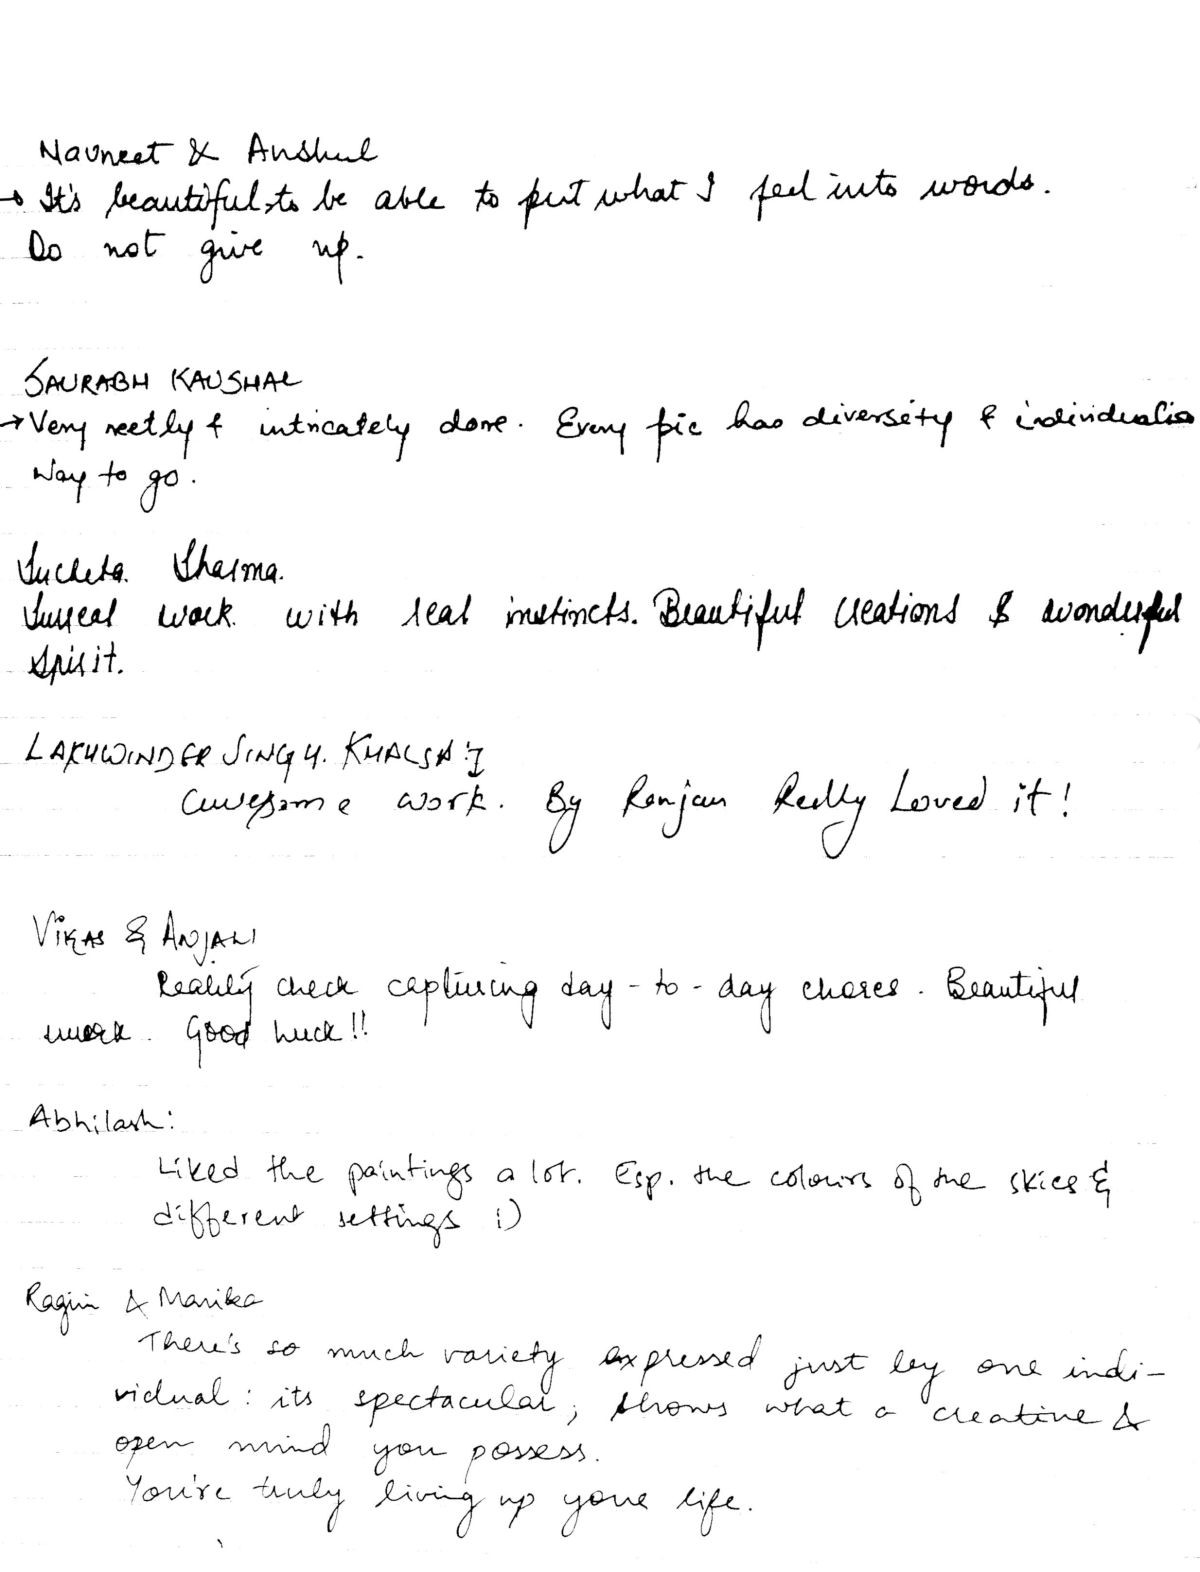 Navneet & Anshul
→ It's beautiful, to be able to put what I feel into words.
Do not give up.
SAURABH KAUSHAL
→ Very neetly & intricately done. Every pic has diversity & individualis
Way to go.
Sucheta. Sharma.
Surreal work. with real instincts. Beautiful creations & wonderful
spirit.
LAKHWINDER SINGH. KHALSA :
awesome work. By Ranjan Really Loved it!
VIKAS & ANJALI
Reality check capturing day-to-day chores. Beautiful
work. Good luck!!
Abhilash:
Liked the paintings a lot. Esp. the colours of the skies &
different settings :)
Ragini & Manika
There's so much variety expressed just by one indi-
vidual: its spectacular, shows what a creative &
open mind you possess.
You're truly living up your life.